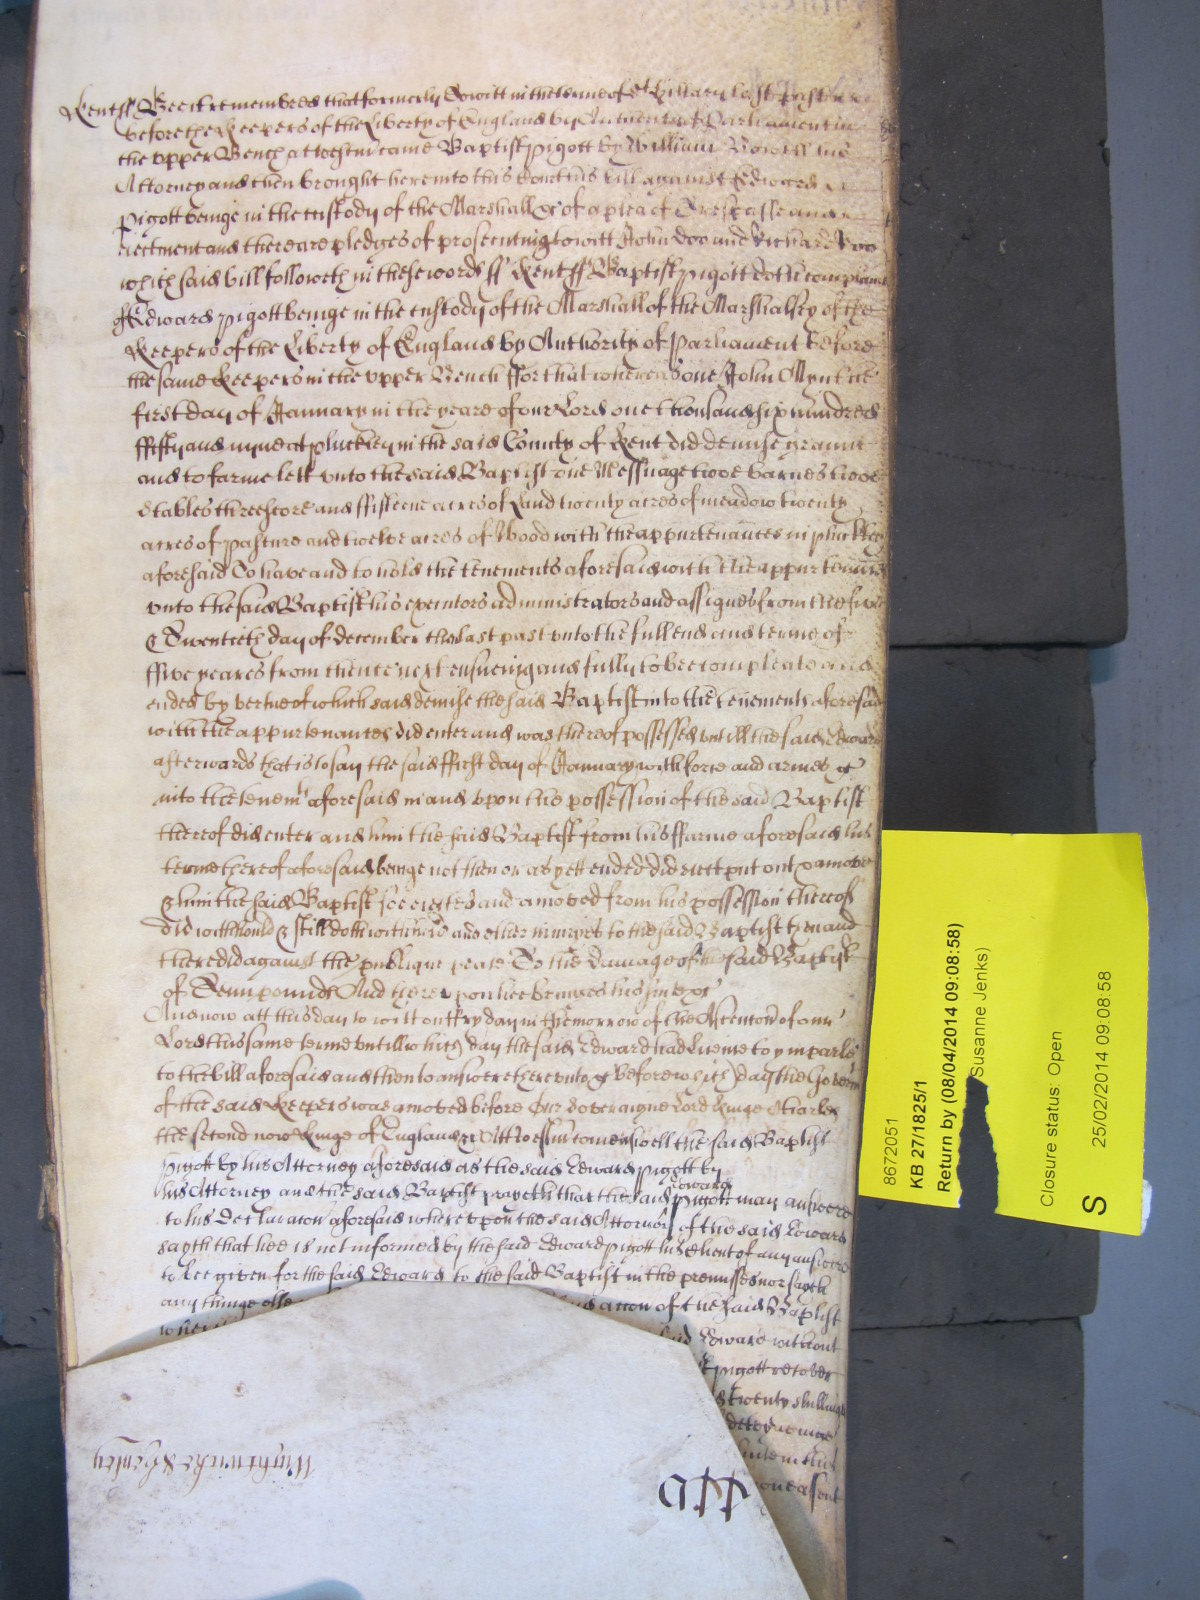 Kent ss Bee it remembred that formerly Towitt in the terme of St Hillary last past
before the Keepers of the Liberty of England by Authority of Parliament in
the upper Bench at Westm came Baptist Pigott by William his
Attorney and then brought here into this Court his bill against Edward
Pigott beinge in the custody of the Marshall &c of a plea of Trespasse and
eiectment and there are pledges of prosecuting towitt John doo and Richard Roo
which said bill followeth in these words ss Kent ss Baptist Pigott doth complaine
of Edward Pigott beinge in the custody of the Marshall of the Marshalsey of the
Keepers of the Liberty of England by Authority of Parliament before
the same Keepers in the upper Bench ffor that whereas one John Mynt the
first day of January in the yeare of our Lord one thousand six hundred
ffifty and nyne at Pluckley in the said County of Kent did demise graunt
and to farme lett unto the said Baptist one Messuage twoe barnes twoe
stables threescore and ffifteene acres of Land twenty acres of meadow twenty
acres of pasture and twelve acres of Wood with the appurtenances in Pluckley
aforesaid To have and to hold the tenements aforesaid with the appurtenances
unto the said Baptist his executors administrators and assignes from the five
& Twentieth day of december then last past unto the full end and terme of
ffive yeares from thence next ensueing and fully to bee compleate and
ended by vertue of which said demise the said Baptist into the tenements aforesaid
with the appurtenances did enter and was thereof possessed untill the said Edward
afterwards that is to say the said ffirst day of January with force and armes &c
into the tenemts aforesaid in and upon the possession of the said Baptist
thereof did enter and him the said Baptist from his ffarme aforesaid his
terme thereof aforesaid beinge not then or as yett ended did eiect put out & amove
& him the said Baptist soe eiected and amoved from his possession thereof
did withhould & still doth withhold and other iniuryes to the said Baptist then and
there did against the publique peace To the damage of the said Baptist
of Tenn pounds And thereupon hee bringes his suite &c
And now att this day to witt on ffryday in the morrow of the Ascention of our
Lord this same terme untill which day the said Edward had licence to imparle
to the bill aforesaid and then to answere thereunto &c before which day the Goverm
of the said Keepers was amoved before Our Soveraigne Lord Kinge Charles
the second now Kinge of England &c Att Westm came aswell the said Baptist
Pigott by his Attorney aforesaid as the said Edward Pigott by
his Attorney and the said Baptist prayeth that the said Edward Pigott may answere
to his declaracon aforesaid whereupon the said Attorney of the said Edward
sayth that hee is not informed by the said Edward Pigott his Client of any answere
to bee given for the said Edward to the said Baptist in the premisses nor sayth
any thinge else accon of the said Baptist
Edward without
Pigott recover
twenty shillings
suite in this
one assent
Wightwicke & Henley
att
8672051
KB 27/1825/1
Return by (08/04/2014 09:08:58)
Susanne Jenks)
Closure status: Open
S
25/02/2014 09:08:58